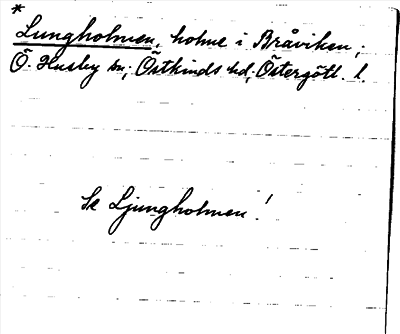 *
Lungholmen, holme i Bråviken;
Ö. Husby sn; Östkinds hd, Östergötl. l.
Se Ljungholmen!